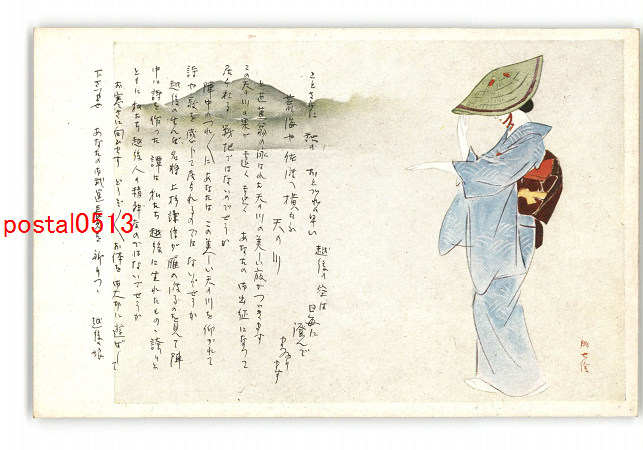 ことさらに 秋の おとづれの早い 越後の空は 日毎に 澄んで まゐります
荒海や 佐渡に横たふ 天の川
と芭蕉翁の詠はれた天の川の美しい夜がつゞきます
この天の川の果が 遠く遠く あなたの御出征になつて
居られる 戦地ではないのでせうか
陣中のつれ〴〵にあなたは この美しい天の川を仰がれて
詩や歌を感じて居られるのでは ないでせうか
越後の生んだ名将 上杉謙信が 雁の渡るのを見て 陣
中に詩を作つた 譚は 私たち 越後に生れたものゝ誇りと
ともに 私たち 越後人の精神なのではないでせうか
お寒さに向ひます どうぞ〳〵お体を御大切に遊ばして
下さいませ あなたの御武運長久を祈りつゝ 越後の娘
postal0513